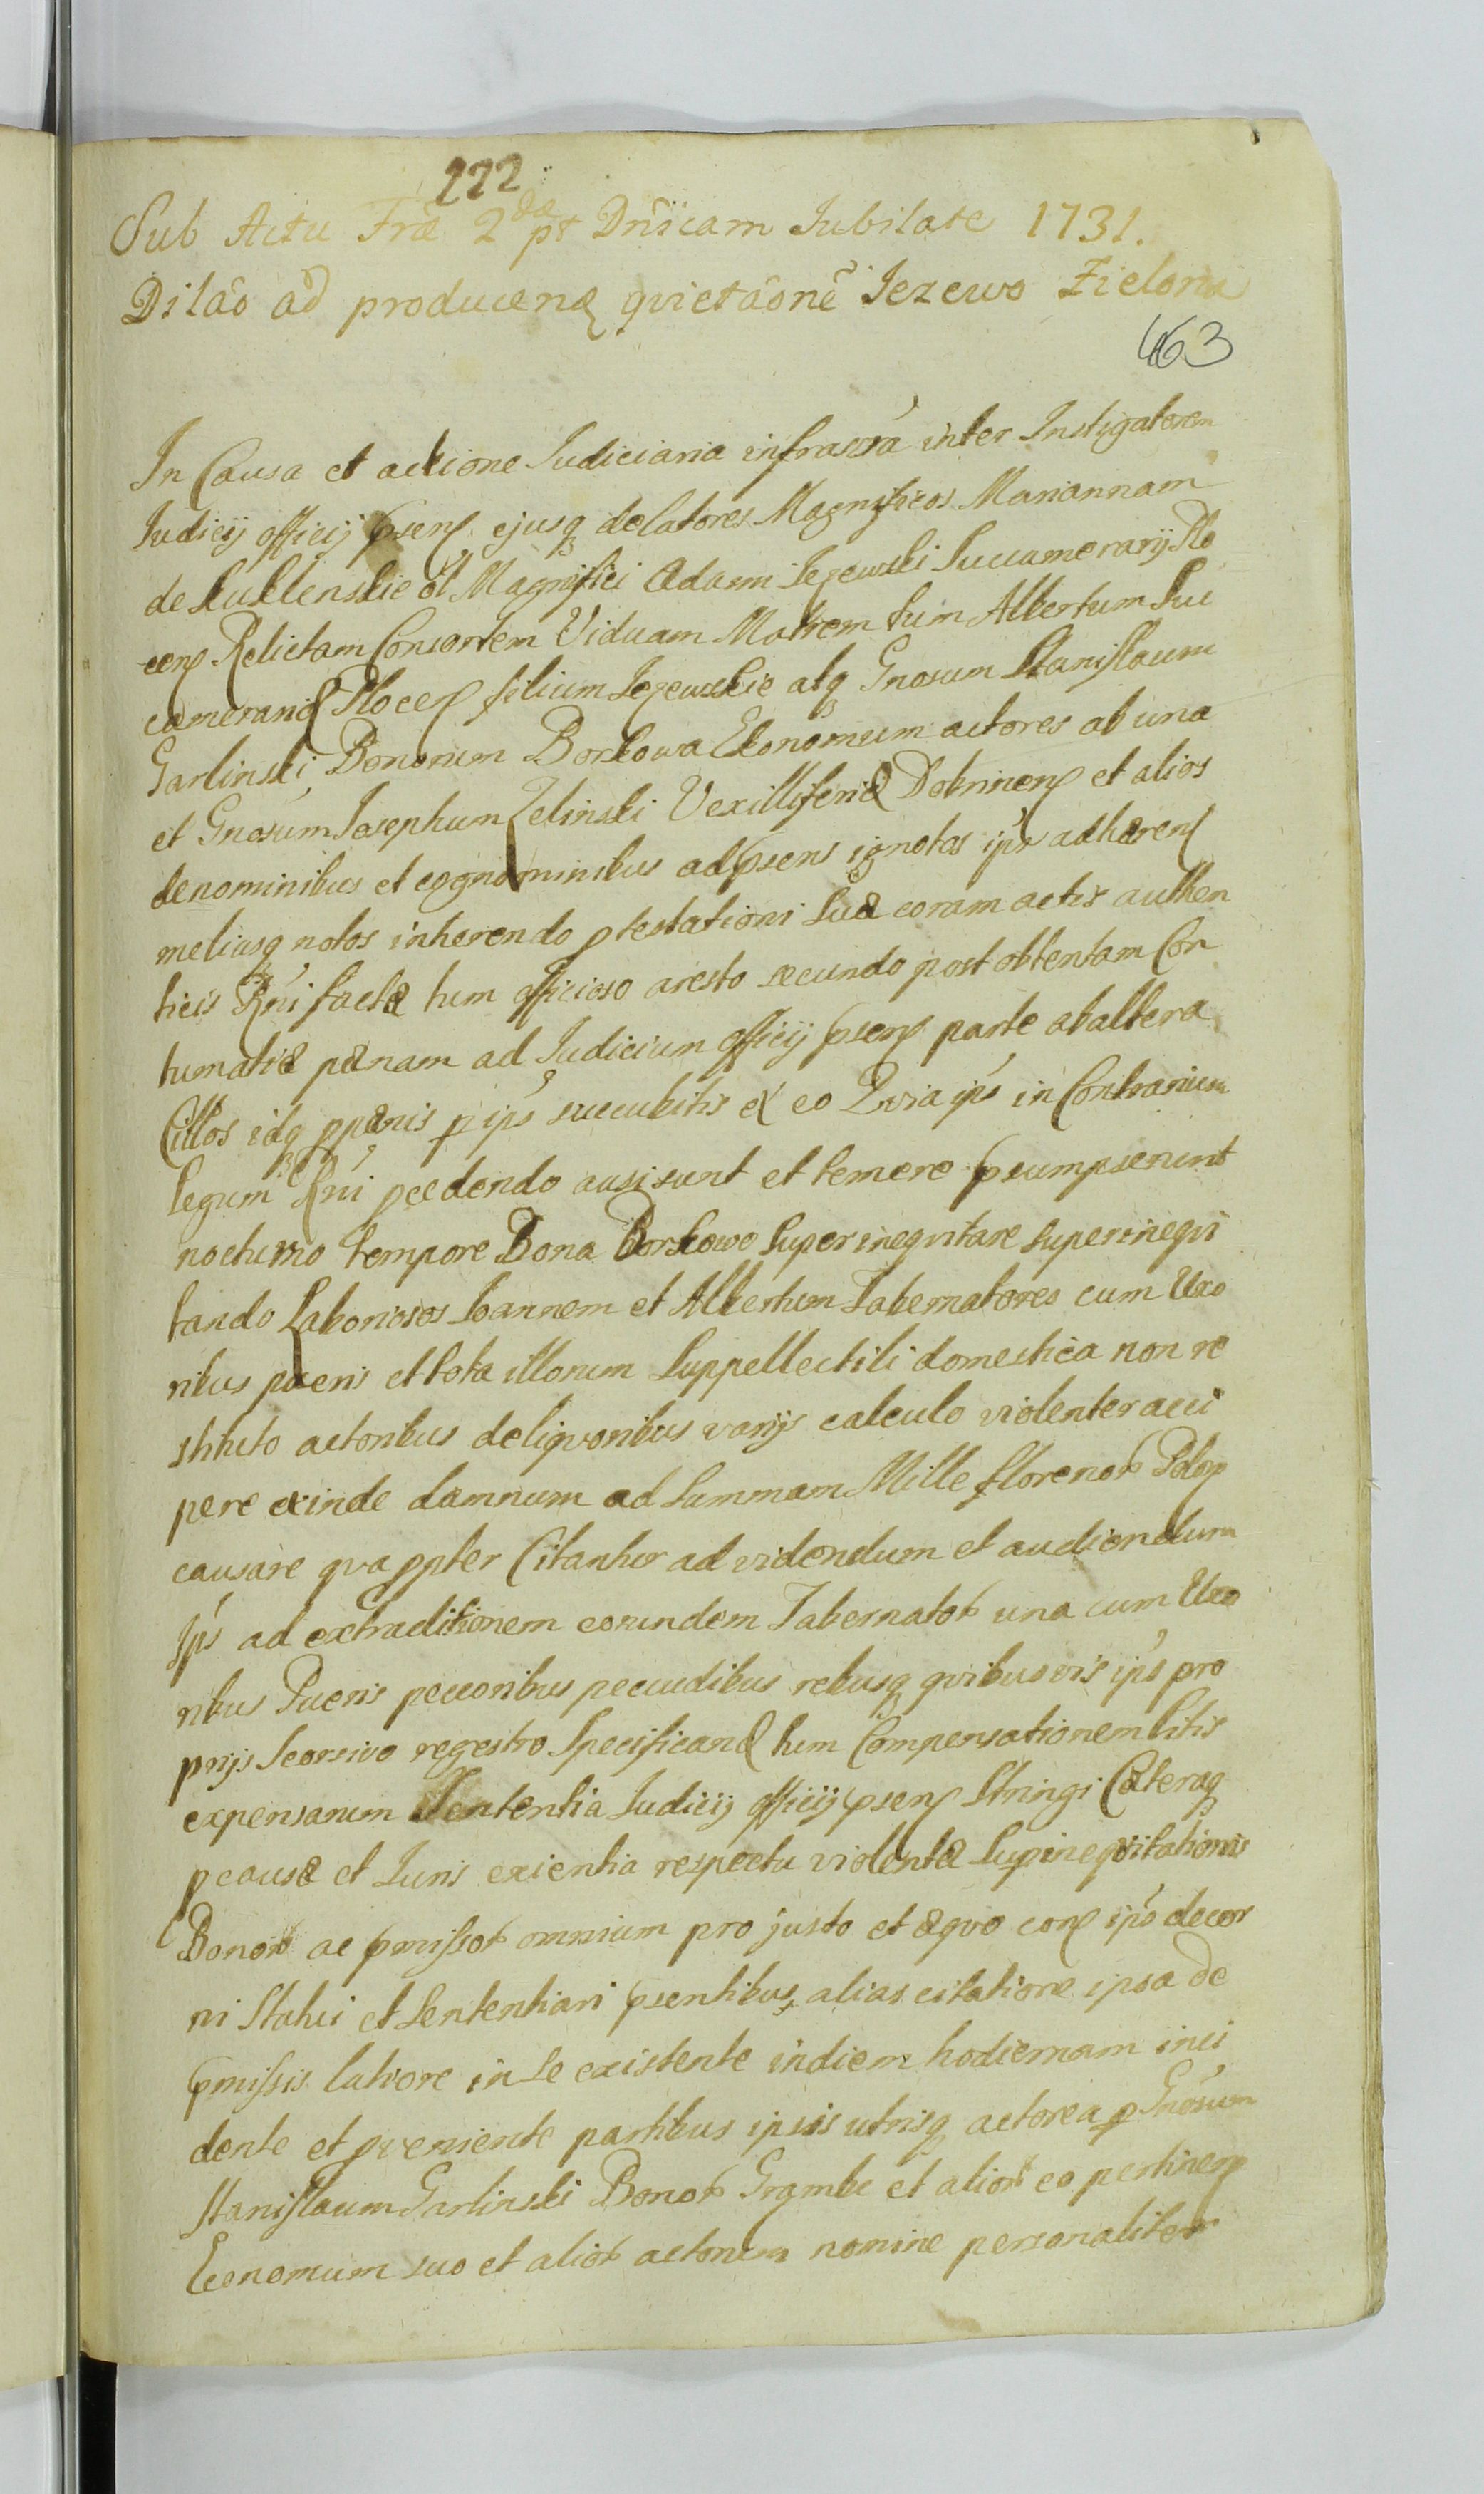 222
Sub Actu Fræ 2dæ pt Dnicam Jubilate 1731.
Dilãõ ad producenɖ qvietãonẽ Jezewo Zielona
463
In Causa et actione Judiciaria infrascrã inter Instigatorem
Judicij officij pnsenꝭ ejusq delatores Magnificos Mariannam
de Kuklenskie ol Magnifici Adami Jezewski Succamerarij Plo
cenꝭ Relictam Consortem Viduam Matrem tum Albertum Suc
cameranidꝭ Plocenꝭ filium Jezewskie atq Gnosum Stanislaum
Garlinski Bonorum Borkowa Ekonomum actores ab una
et Gnosum Josephum Zelinski Vexilliferidꝭ Dobrinenꝭ et alios
de nominibus et cognominibus ad psens ignotos ips adhærenꝭ
meliusq notos inhærendo ptestationi suæ coram actis authen
ticis Rni factæ tum officioso aresto secundo post obtentam Con
tumatiæ pænam ad Judicium officij psenꝭ parte ab altera
Cittos idq ppænis p ips succubitis ex eo Qvia ips in Contrarium
legum Rni pcedendo ausi sunt et temere psumpserunt
nocturno tempore Bona Borkowo superineqvitare superineqvi
tando Laboriosos Joannem et Albertum Tabernatores cum Uxo
ribus pueris et tota illorum suppellectili domestica non re
stituto actoribus de liqvoribus varijs calculo violenter acci
pere exinde damnum ad summam Mille florenoꝝ Polꝭ
causare qvappter Citantur ad videndum et audiendum
Ips ad extraditionem eorundem Tabernatoꝝ una cum Uxo
ribus Pueris pecoribus pecudibus rebusq qvibusvis ips pro
prijs seorsivo regestro specificandꝭ tum Compensationem litis
expensarum Sententia Judicij officij psenꝭ stringi Cæteraq
p causæ et Juris exientia respectu violentæ supineqvitationis
Bonoꝝ ac pmissoꝝ omnium pro justo et æqvo conꝭ ips decer
ni Statui et Sententiari psentibus, alias citatione ipsa de
pmissis latiore in se existente in diem hodiernam inci
dente et pveniente partibus ipsis utrisq actorea p Gnosum
Stanislaum Garlinski Bonoꝝ Grambc et alioꝝ eo pertinenꝭ
Economum suo et alioꝝ actorum nomine personaliter